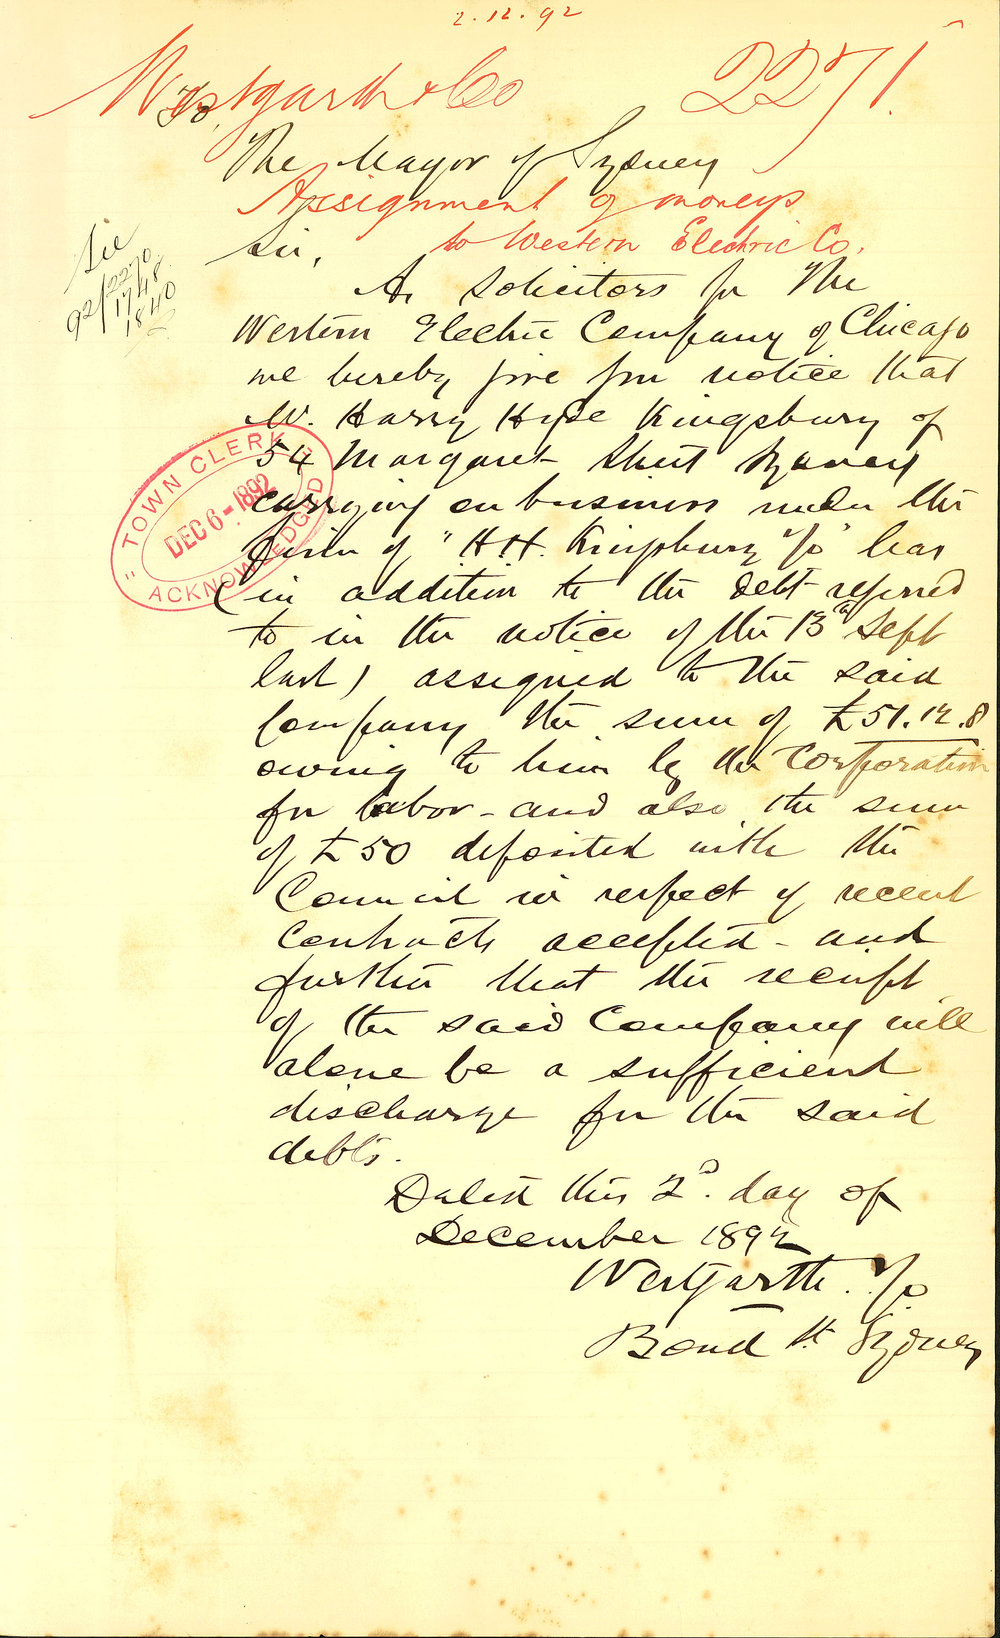 2.12.92
Westgarth & Co 2271
To,
The Mayor of Sydney
Assignment of moneys
to Western Electric Co.
Sir,
See
92/2270
1748
1840
As Solicitors for The
Western Electric Company of Chicago
we hereby give you notice that
Mr. Harry Hyde Kingsbury of
54 Margaret Street Sydney
carrying on business under the
firm of "H H. Kingsbury & Co" has
(in addition to the debt referred
to in the notice of the 13th Sept
last) assigned to the said
Company the sum of £51.12.8
owing to him by the Corporation
for labor - and also the sum
of £50 deposited with the
Council in respect of recent
Contracts accepted - and
further that the receipt
of the said Company will
alone be a sufficient
discharge for the said
debts.
Dated this 2d. day of
December 1892
Westgarth & Co
Bond St Sydney
TOWN CLERK
DEC 6-1892
ACKNOWLEDGED